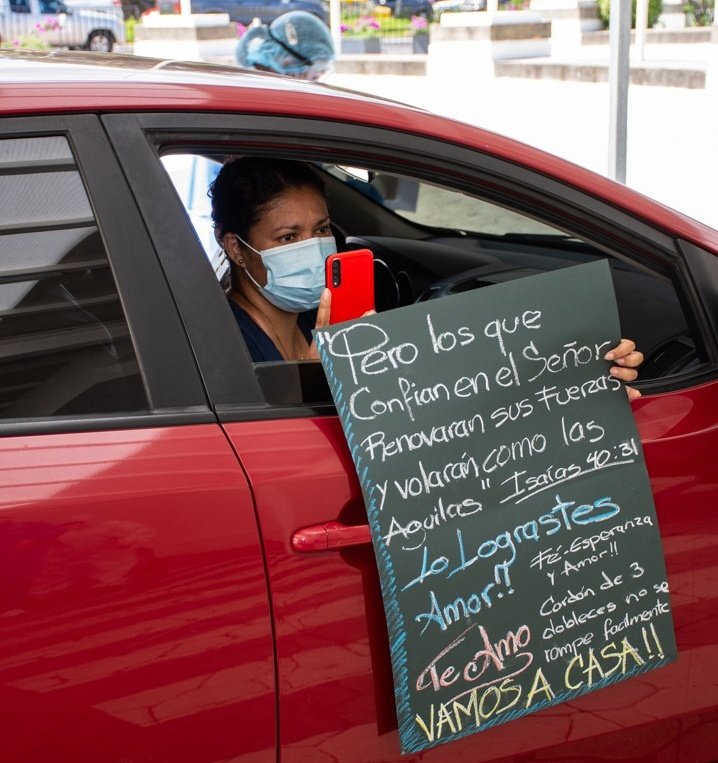 "Pero los que
Confian en el Señor
Renovaran sus Fuerzas
y volarán como las
Aguilas" Isaías 40:31
Lo Lograste
Amor!!
Fé-Esperanza
y Amor!!
Cordón de 3
dobleces no se
rompe facilmente
Te Amo
VAMOS A CASA!!